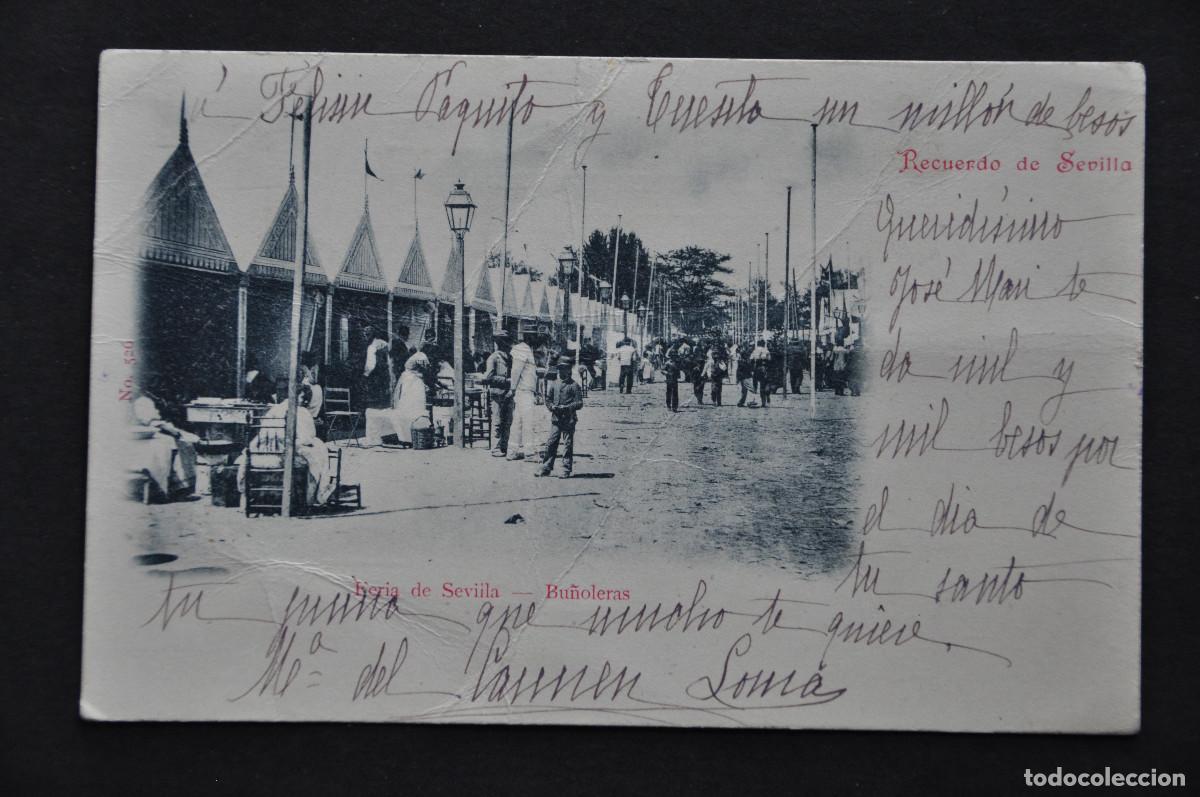 á Felisín Paquito y Cuesta un millón de besos
Recuerdo de Sevilla
Queridísimo
José Mari te
do mil y
mil besos por
el dia de
tu santo
No. 526
Feria de Seviila — Buñoleras
tu prima que mucho te quiere
Mª del Carmen Loma
todocoleccion